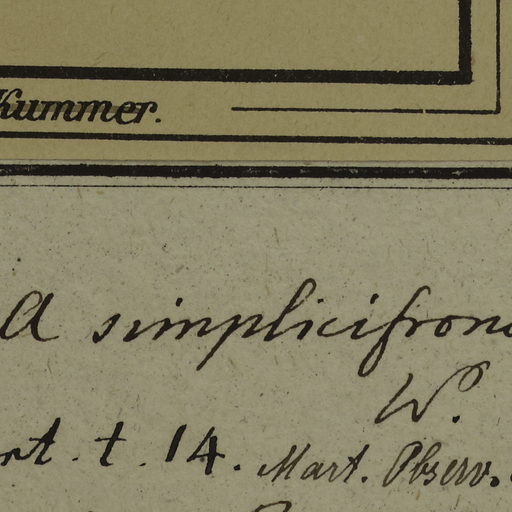 Kummer.
A simplicifrons
W.
rt. t. 14. Mart. Observ.